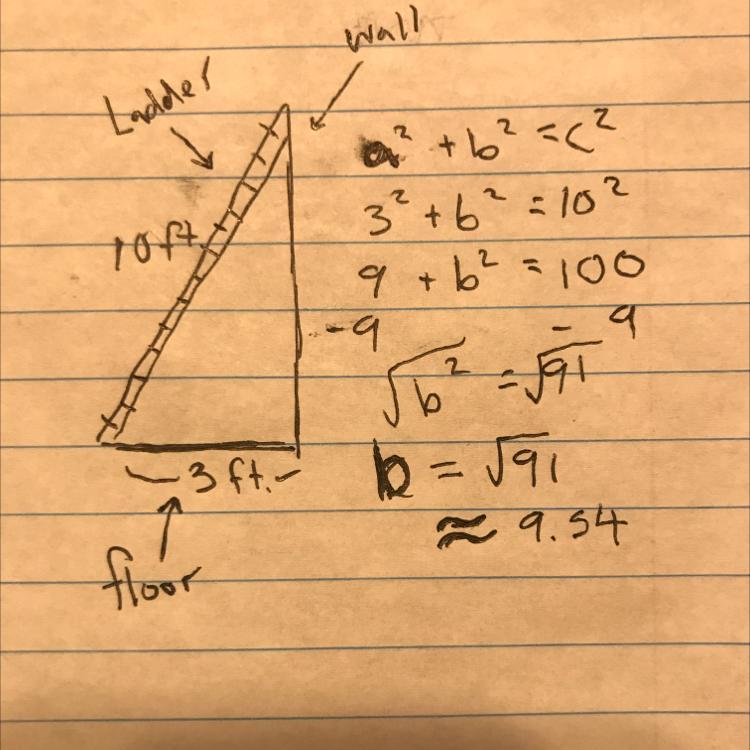 wall
Ladder
10 ft
3 ft.
floor
a² + b² = c²
3² + b² = 10²
9 + b² = 100
-9 - 9
√b² = √91
b = √91
≈ 9.54